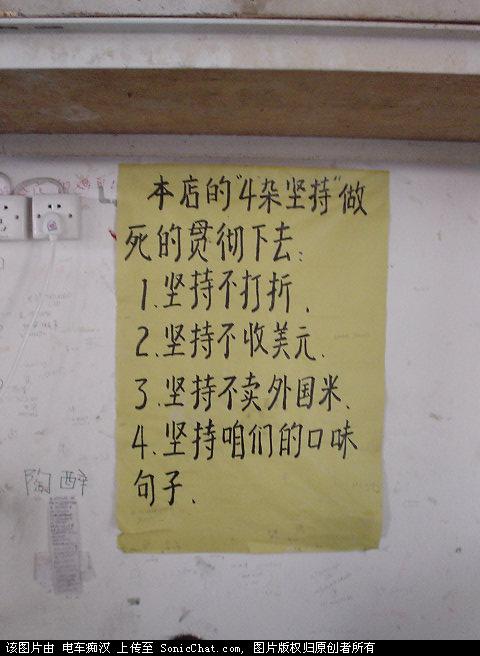 本店的"4杂坚持"做
死的贯彻下去:
1.坚持不打折.
2.坚持不收美元.
3.坚持不卖外国米.
4.坚持咱们的口味
句子.
陶醉
该图片由 电车痴汉 上传至 SonicChat.com, 图片版权归原创者所有